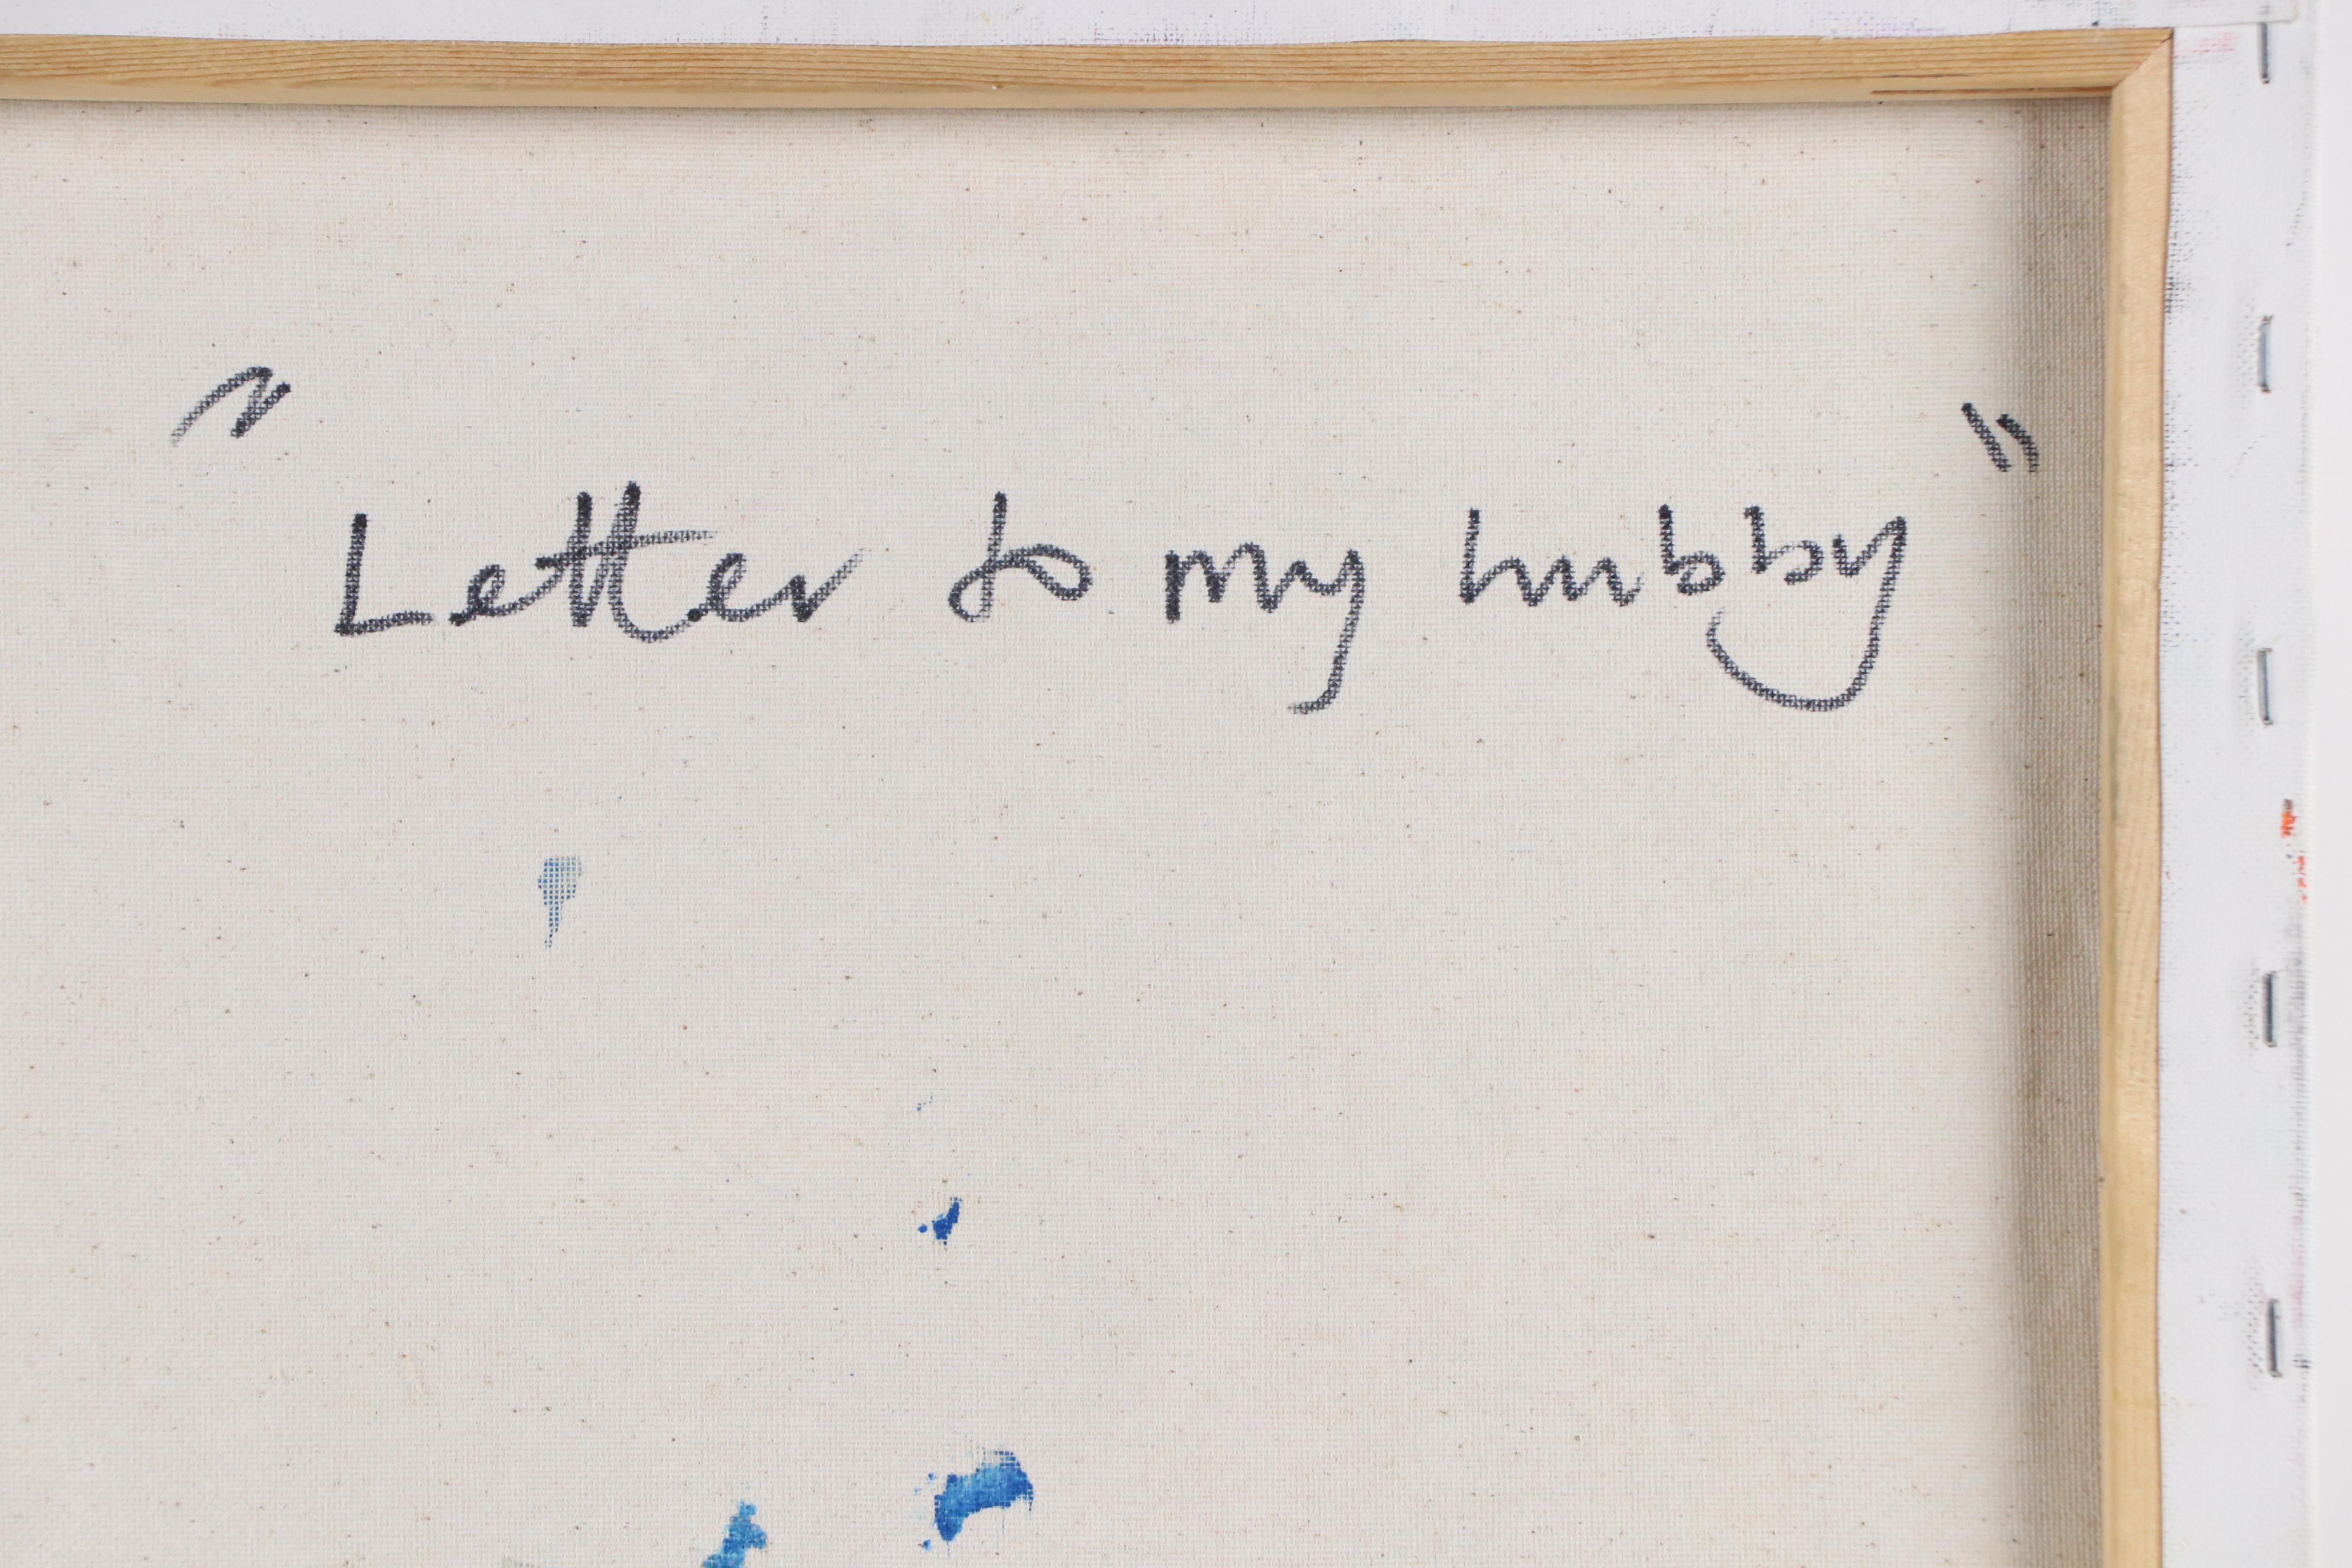 "Letter to my hubby"